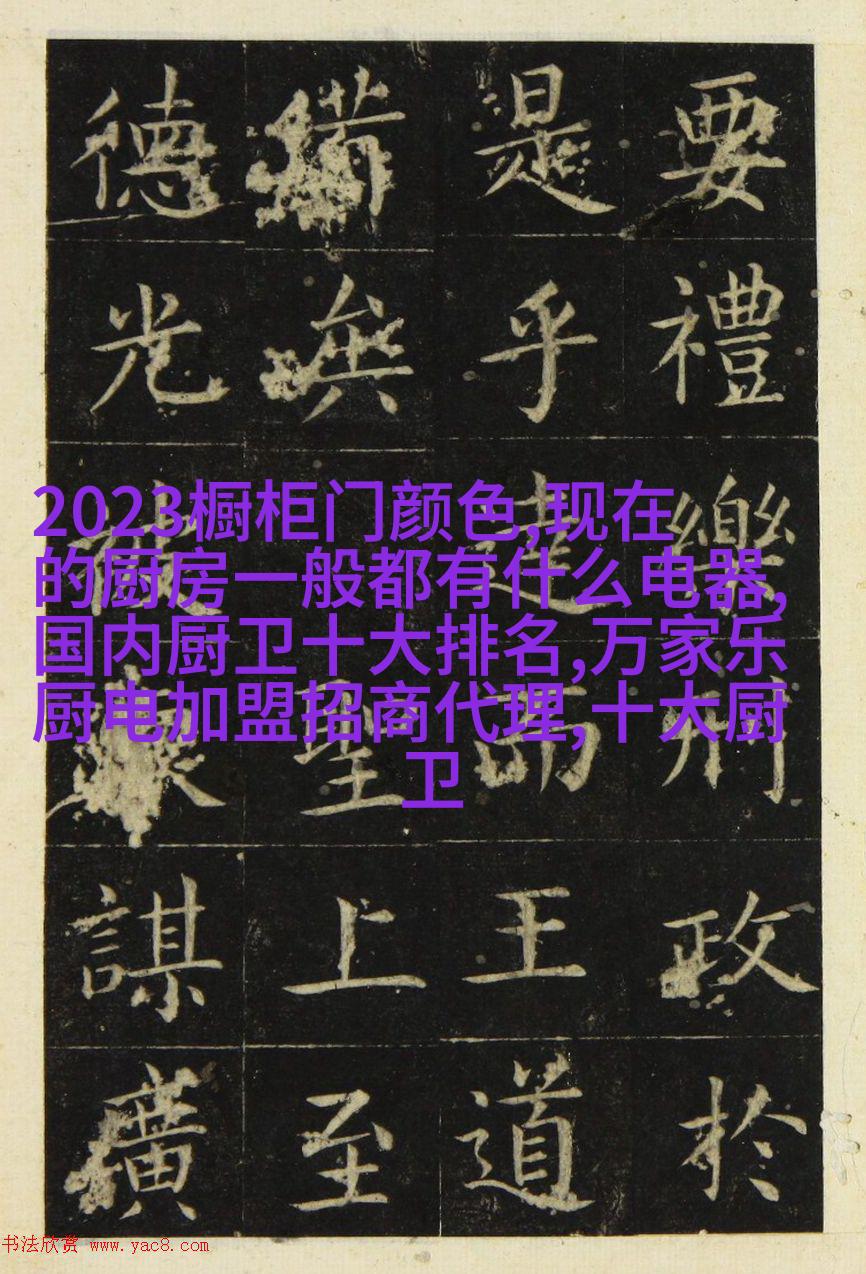 要禮樂刑政於
是乎達而王道
無聖上至
德光謀廣
2023橱柜门颜色,现在
的厨房一般都有什么电器,
国内厨卫十大排名,万家乐
厨电加盟招商代理,十大厨
卫
书法欣赏 www.yac8.com